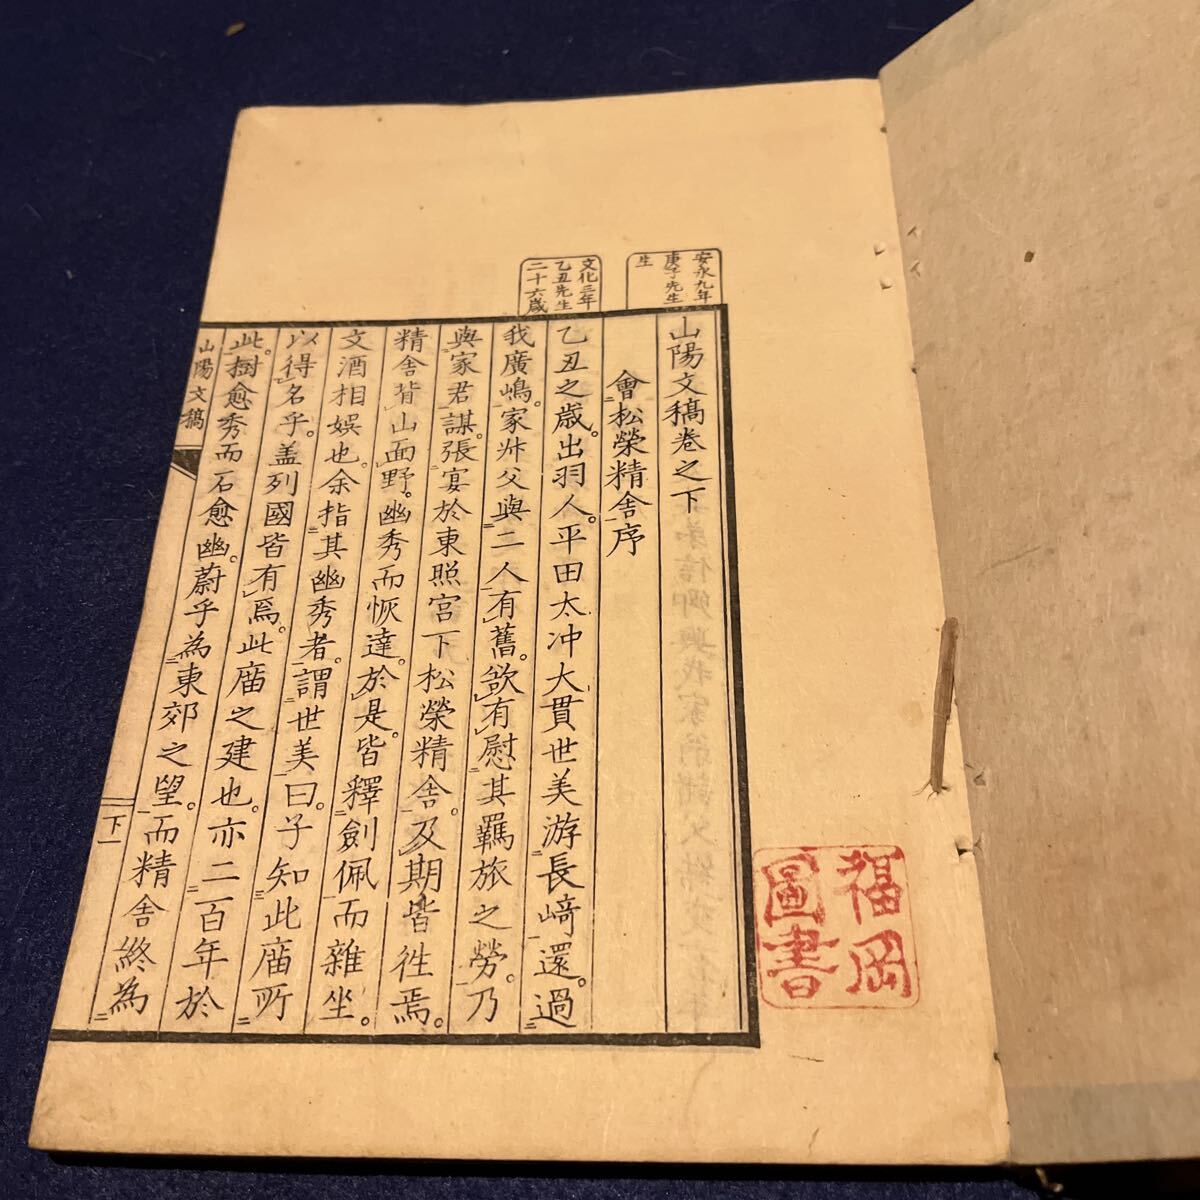 安永九年
庚子先生
生
文化三年
乙丑先生
二十六歳
山陽文稿卷之下
會松榮精舎序
乙丑之歳。出羽人。平田太冲大貫世美游長﨑還。過
我廣嶋。家叔父與二人有舊。欲有慰其羈旅之勞。乃
與家君謀。張宴於東照宮下松榮精舎。及期皆徃焉。
精舎背山面野。幽秀而恢達。於是。皆釋劍佩而雜坐。
文酒相娯也。余指其幽秀者。謂世美曰。子知此庿所
以得名乎。盖列國皆有焉。此庿之建也。亦二百年於
此。樹愈秀而石愈幽。蔚乎為東郊之望。而精舎終為
山陽文稿
下一
福岡
圖書